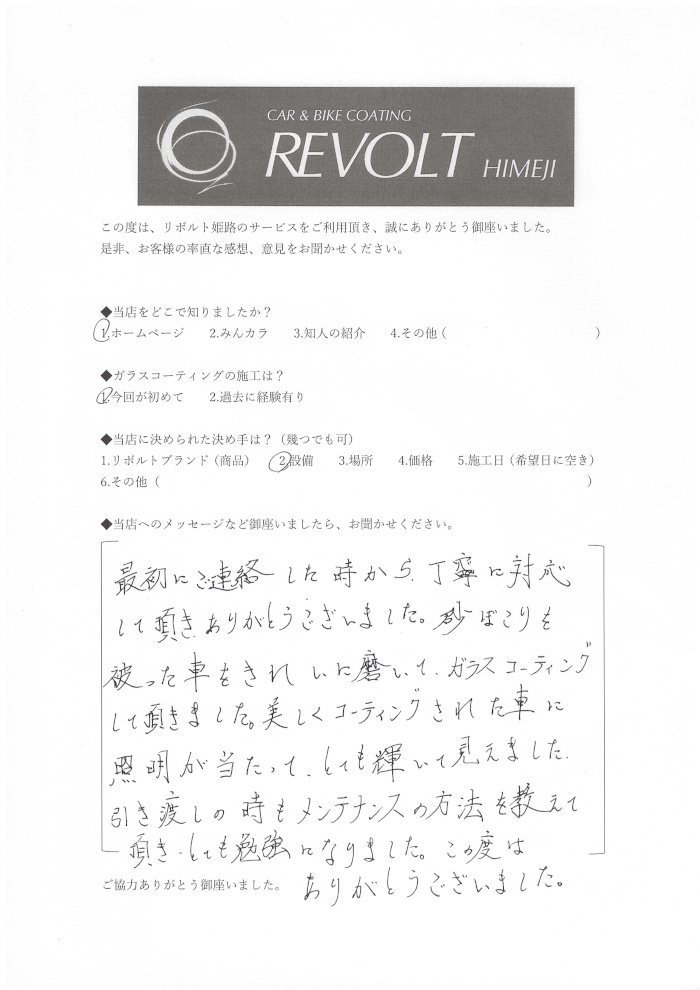 CAR & BIKE COATING
REVOLT HIMEJI
この度は、リボルト姫路のサービスをご利用頂き、誠にありがとう御座いました。
是非、お客様の率直な感想、意見をお聞かせください。
◆当店をどこで知りましたか？
1.ホームページ 2.みんカラ 3.知人の紹介 4.その他（ ）
◆ガラスコーティングの施工は？
1.今回が初めて 2.過去に経験有り
◆当店に決められた決め手は？（幾つでも可）
1.リボルトブランド（商品） 2.設備 3.場所 4.価格 5.施工日（希望日に空き）
6.その他（ ）
◆当店へのメッセージなど御座いましたら、お聞かせください。
最初にご連絡した時から、丁寧に対応
して頂き、ありがとうございました。砂ぼこりを
被った車をきれいに磨いて、ガラスコーティング
して頂きました。美しくコーティングされた車に
照明が当たって、とても輝いて見えました。
引き渡しの時もメンテナンスの方法を教えて
頂き、とても勉強になりました。この度は
ありがとうございました。
ご協力ありがとう御座いました。